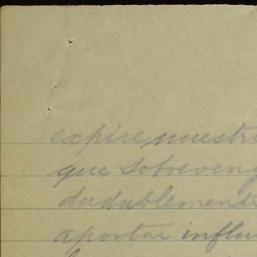 expire nuestr
que sobreveng
dudablemente
aportar influ